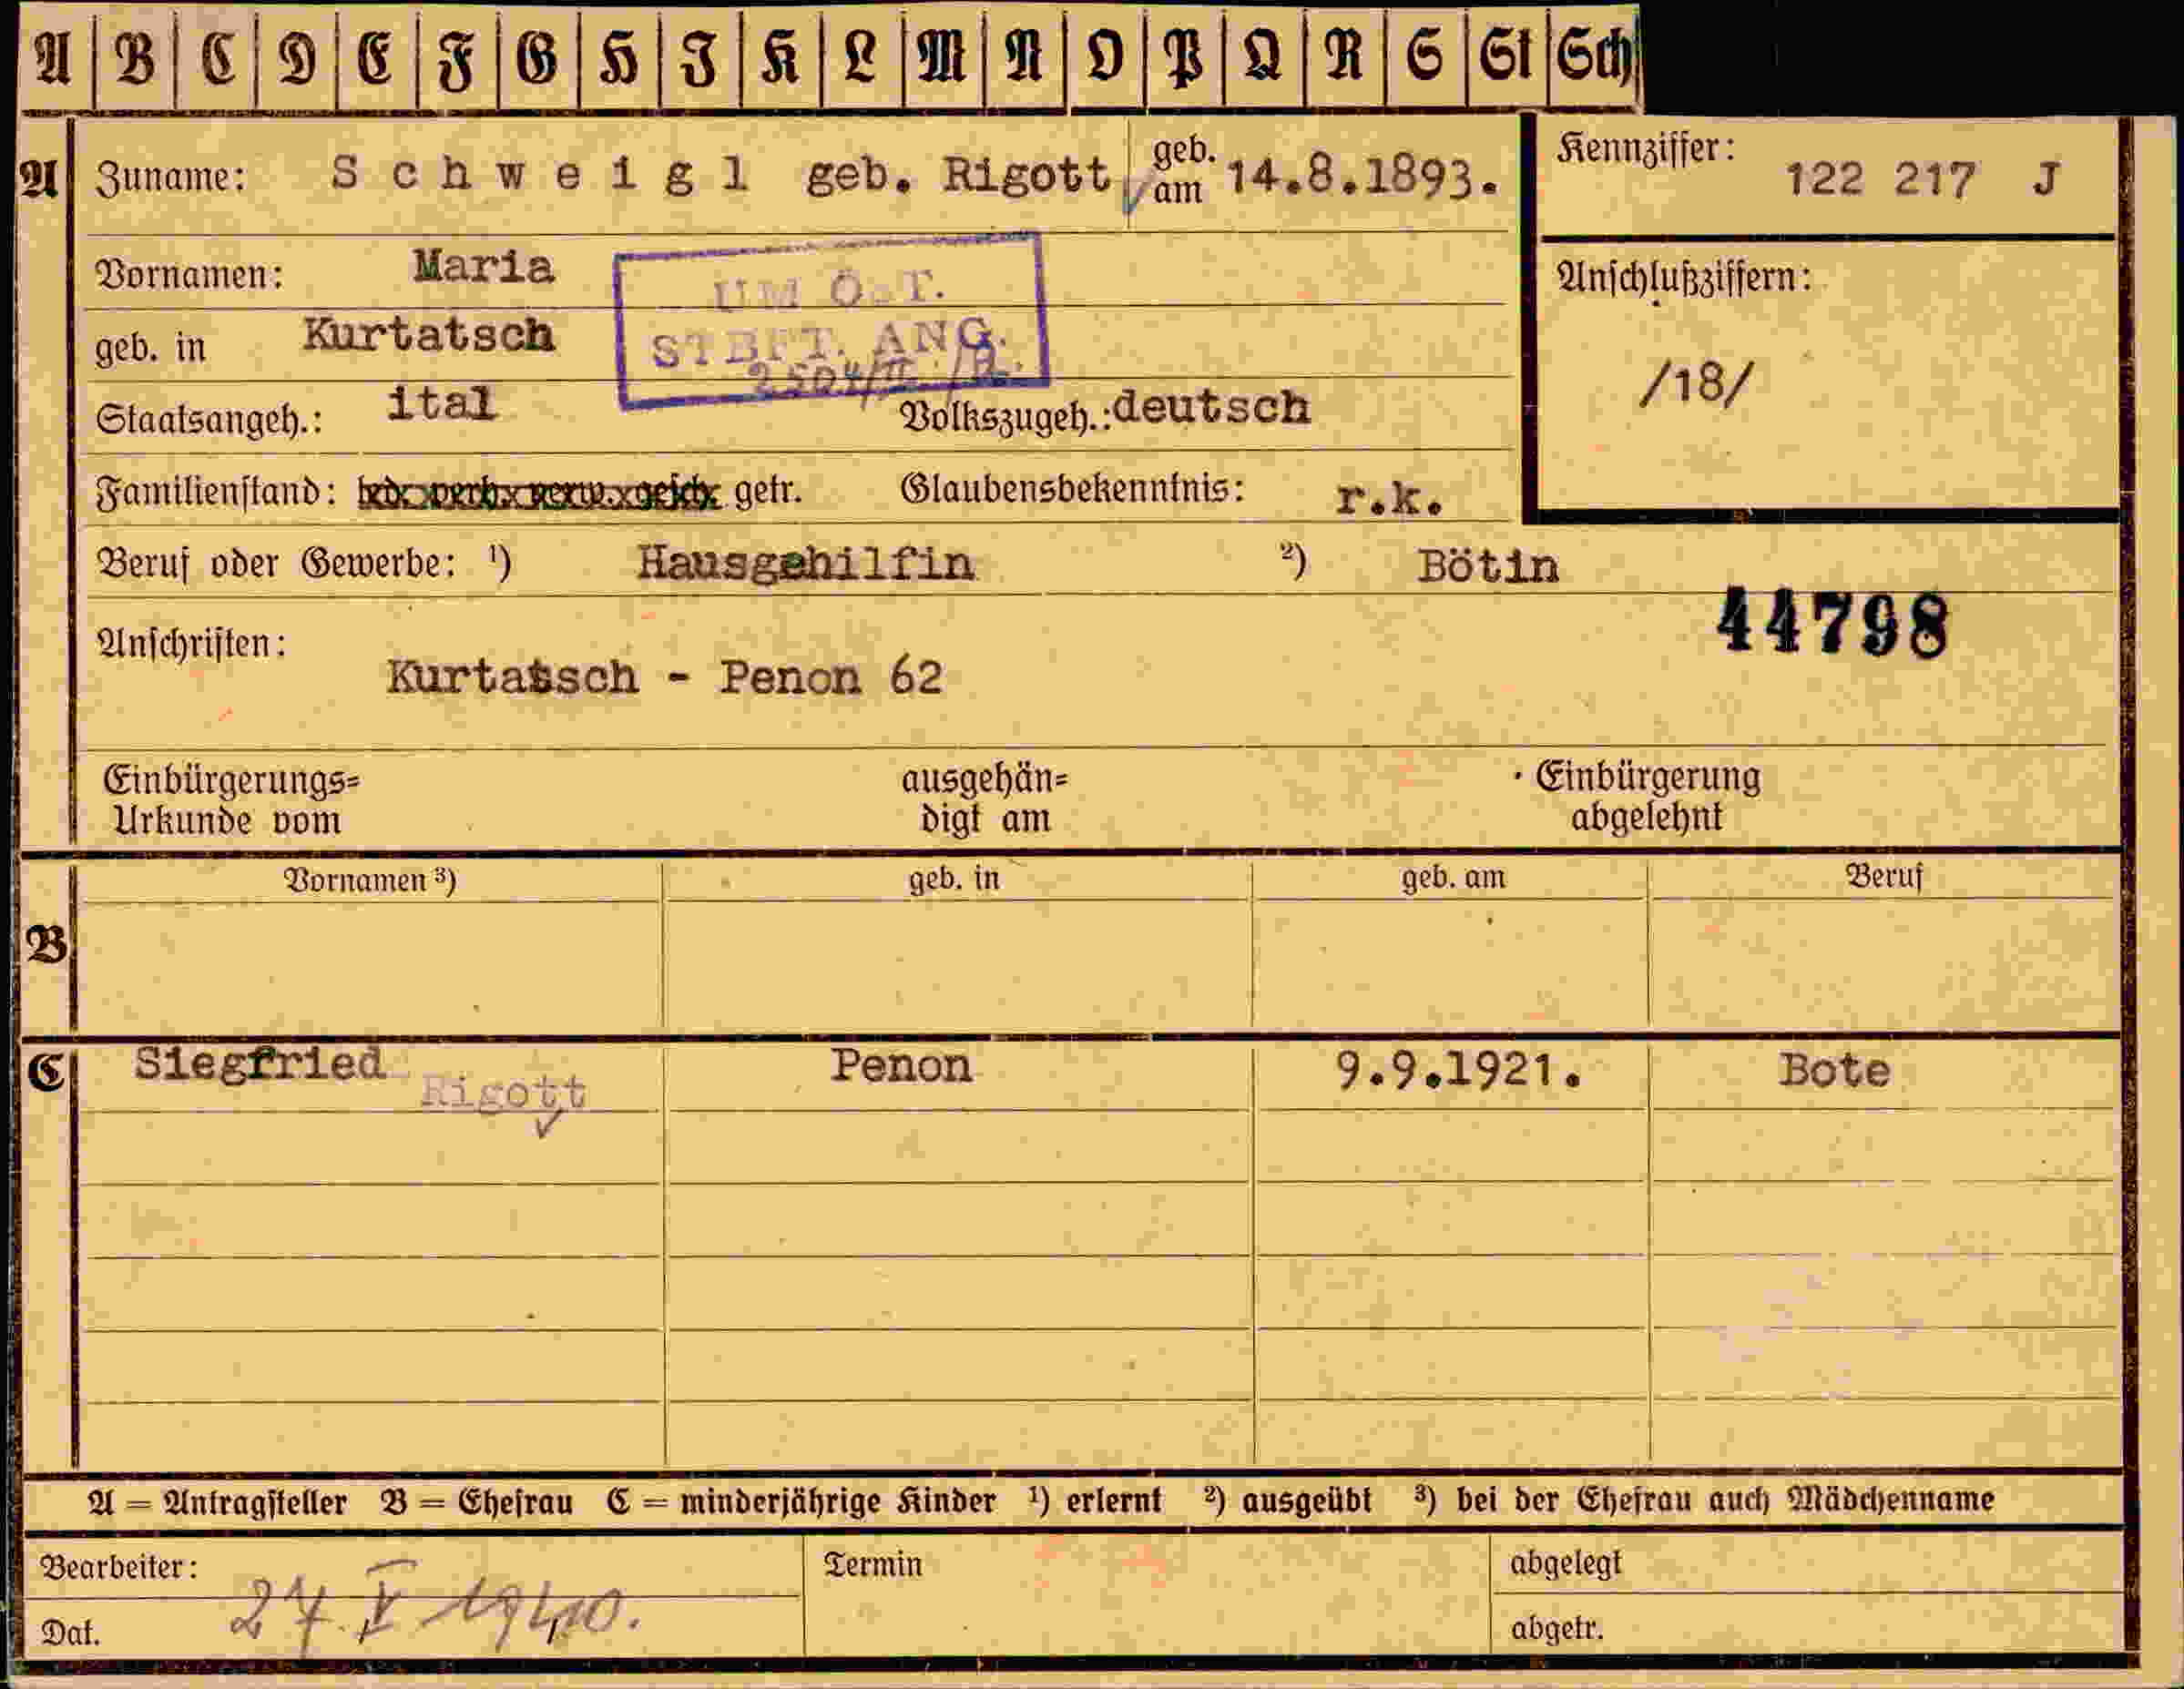 A B C D E F G H I K L M N O P Q R S St Sch
A Zuname: Schweigl geb. Rigott geb. am 14.8.1893. Kennziffer: 122 217 J
Vornamen: Maria
UM Ö.T.
STBFT. ANG.
Anschlußziffern:
/18/
geb. in Kurtatsch
Staatsangeh.: ital Volkszugeh.: deutsch
Familienstand: getr. Glaubensbekenntnis: r.k.
Beruf oder Gewerbe: ¹) Hausgehilfin ²) Bötin
44798
Anschriften:
Kurtatsch - Penon 62
Einbürgerungs= ausgehän= Einbürgerung
Urkunde vom digt am abgelehnt
Vornamen ³) geb. in geb. am Beruf
B
C Siegfried Rigott Penon 9.9.1921. Bote
A = Antragsteller B = Ehefrau C = minderjährige Kinder ¹) erlernt ²) ausgeübt ³) bei der Ehefrau auch Mädchenname
Bearbeiter: Termin abgelegt
Dat. 27. V 1940. abgetr.